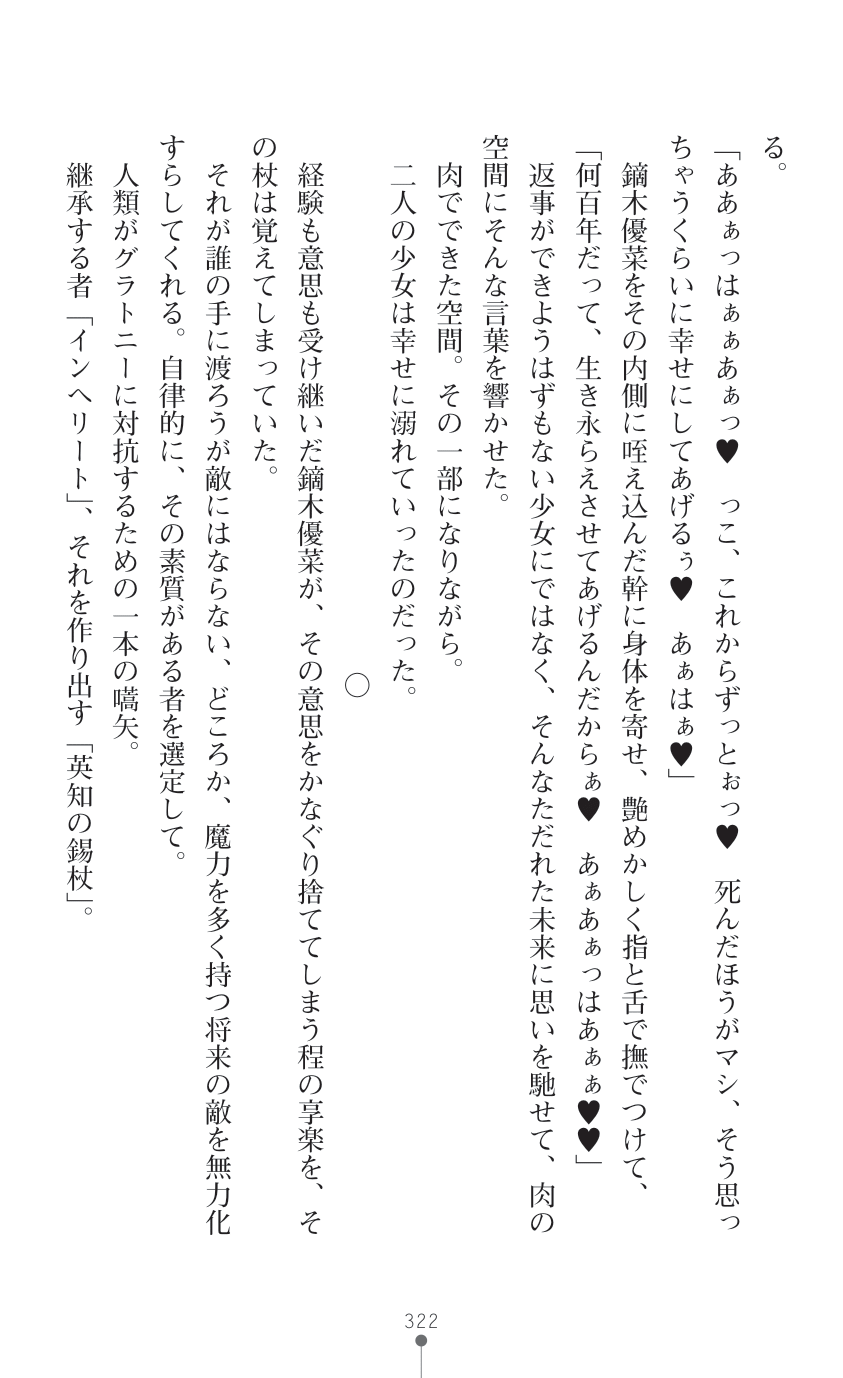 る。
「ああぁっはぁぁあぁっ♥　っこ、これからずっとぉっ♥　死んだほうがマシ、そう思っ
ちゃうくらいに幸せにしてあげるぅ♥　あぁはぁ♥」
　鏑木優菜をその内側に咥え込んだ幹に身体を寄せ、艶めかしく指と舌で撫でつけて、
「何百年だって、生き永らえさせてあげるんだからぁ♥　あぁあぁっはあぁぁ♥♥」
　返事ができようはずもない少女にではなく、そんなただれた未来に思いを馳せて、肉の
空間にそんな言葉を響かせた。
　肉でできた空間。その一部になりながら。
　二人の少女は幸せに溺れていったのだった。
○
　経験も意思も受け継いだ鏑木優菜が、その意思をかなぐり捨ててしまう程の享楽を、そ
の杖は覚えてしまっていた。
　それが誰の手に渡ろうが敵にはならない、どころか、魔力を多く持つ将来の敵を無力化
すらしてくれる。自律的に、その素質がある者を選定して。
　人類がグラトニーに対抗するための一本の嚆矢。
　継承する者「インヘリート」、それを作り出す「英知の錫杖」。
322